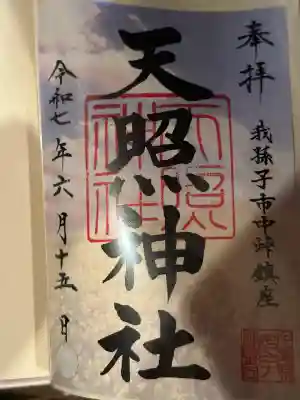 奉拝
我孫子市中峠鎮座
天照神社
令和七年六月十五日
天照
神社